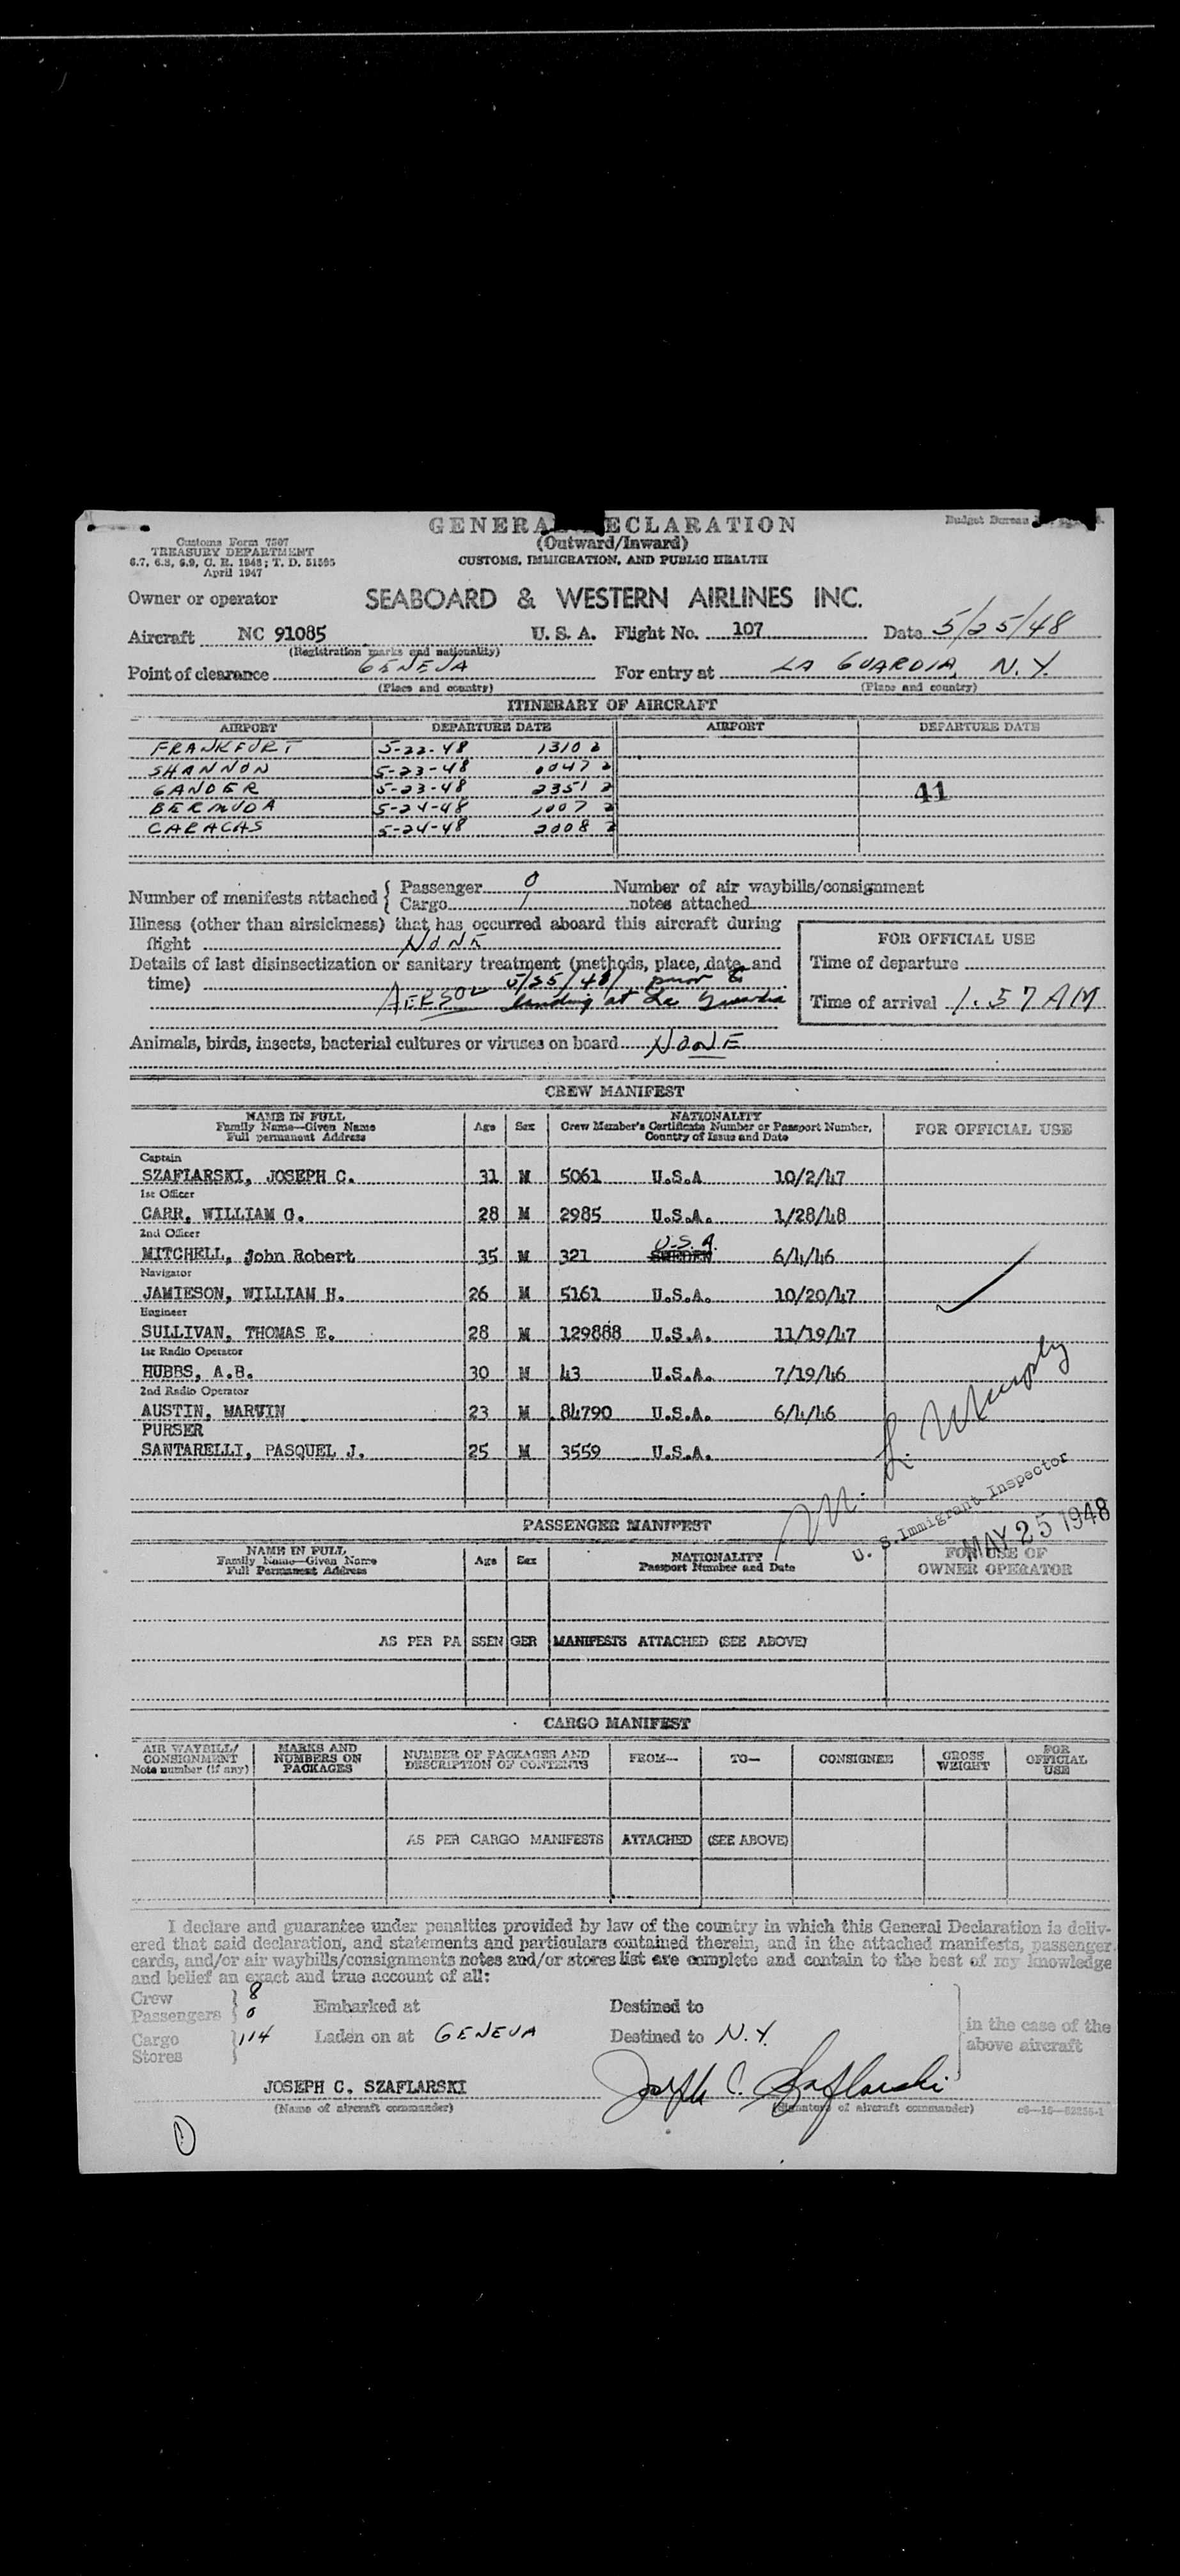 GENERA ECLARATION
(Outward/Inward)
CUSTOMS, IMMIGRATION, AND PUBLIC HEALTH
Budget Bureau
Customs Form 7507
TREASURY DEPARTMENT
6.7, 6.8, 6.9, C. R. 1943; T. D. 51595
April 1947
Owner or operator SEABOARD & WESTERN AIRLINES INC.
Aircraft NC 91085 U. S. A. Flight No. 107 Date 5/25/48
(Registration marks and nationality)
Point of clearance GENEVA For entry at LA GUARDIA, N.Y.
(Place and country) (Place and country)
ITINERARY OF AIRCRAFT
AIRPORT DEPARTURE DATE AIRPORT DEPARTURE DATE
FRANKFURT 5-22-48 1310 Z
SHANNON 5-23-48 0047 Z
GANDER 5-23-48 2351 Z 41
BERMUDA 5-24-48 1007 Z
CARACAS 5-24-48 2008 Z
Number of manifests attached { Passenger 0 Number of air waybills/consignment
Cargo 1 notes attached
Illness (other than airsickness) that has occurred aboard this aircraft during
flight NONE
FOR OFFICIAL USE
Details of last disinsectization or sanitary treatment (methods, place, date and
Time of departure
time) 5/25/48/ prior to
AERSOL landing at La Guardia
Time of arrival 1.57 AM
Animals, birds, insects, bacterial cultures or viruses on board NONE
CREW MANIFEST
NAME IN FULL
Family Name—Given Name
Full permanent Address
Age Sex
NATIONALITY
Crew Member's Certificate Number or Passport Number,
Country of Issue and Date
FOR OFFICIAL USE
Captain
SZAFLARSKI, JOSEPH C. 31 M 5061 U.S.A 10/2/47
1st Officer
CARR, WILLIAM G. 28 M 2985 U.S.A. 1/28/48
2nd Officer
U.S.A.
MITCHELL, John Robert 35 M 321 SWEDEN 6/4/46
Navigator
JAMIESON, WILLIAM H. 26 M 5161 U.S.A. 10/20/47
Engineer
SULLIVAN, THOMAS E. 28 M 129888 U.S.A. 11/19/47
1st Radio Operator
HUBBS, A.B. 30 M 43 U.S.A. 7/19/46
2nd Radio Operator
AUSTIN, MARVIN 23 M 84790 U.S.A. 6/4/46
PURSER
SANTARELLI, PASQUEL J. 25 M 3559 U.S.A.
M. L. Murphy
U. S. Immigrant Inspector
MAY 25 1948
PASSENGER MANIFEST
NAME IN FULL
Family Name—Given Name
Full Permanent Address
Age Sex
NATIONALITY
Passport Number and Date
FOR USE OF
OWNER OPERATOR
AS PER PASSENGER MANIFESTS ATTACHED (SEE ABOVE)
CARGO MANIFEST
AIR WAYBILL/
CONSIGNMENT
Note number (if any)
MARKS AND
NUMBERS ON
PACKAGES
NUMBER OF PACKAGES AND
DESCRIPTION OF CONTENTS
FROM—
TO—
CONSIGNEE
GROSS
WEIGHT
FOR
OFFICIAL
USE
AS PER CARGO MANIFESTS ATTACHED (SEE ABOVE)
I declare and guarantee under penalties provided by law of the country in which this General Declaration is deliv-
ered that said declaration, and statements and particulars contained therein, and in the attached manifests, passenger
cards, and/or air waybills/consignments notes and/or stores list are complete and contain to the best of my knowledge
and belief an exact and true account of all:
Crew 8
Passengers 0 Embarked at Destined to
in the case of the
Cargo 114 Laden on at GENEVA Destined to N.Y.
above aircraft
Stores
JOSEPH C. SZAFLARSKI Joseph C. Szaflarski
(Name of aircraft commander) (Signature of aircraft commander)